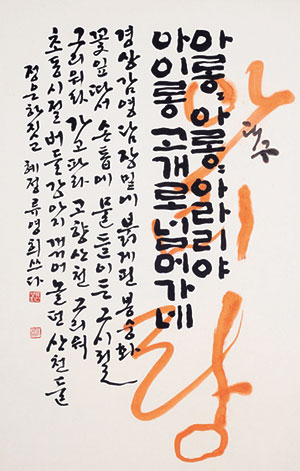 대구
아리랑
아롱〃아롱〃아라리야
아이롱 고개로 넘어가네
경상감영 담장 밑에 붉게 핀 봉숭화
꽃잎 따서 손톱에 물들이든 그 시절
그리워라 가고파라 고향산천 그리워
초동시절 버들강아지 꺾어 놀던 산천들
정은하 짓고 혜정 류영희 쓰다